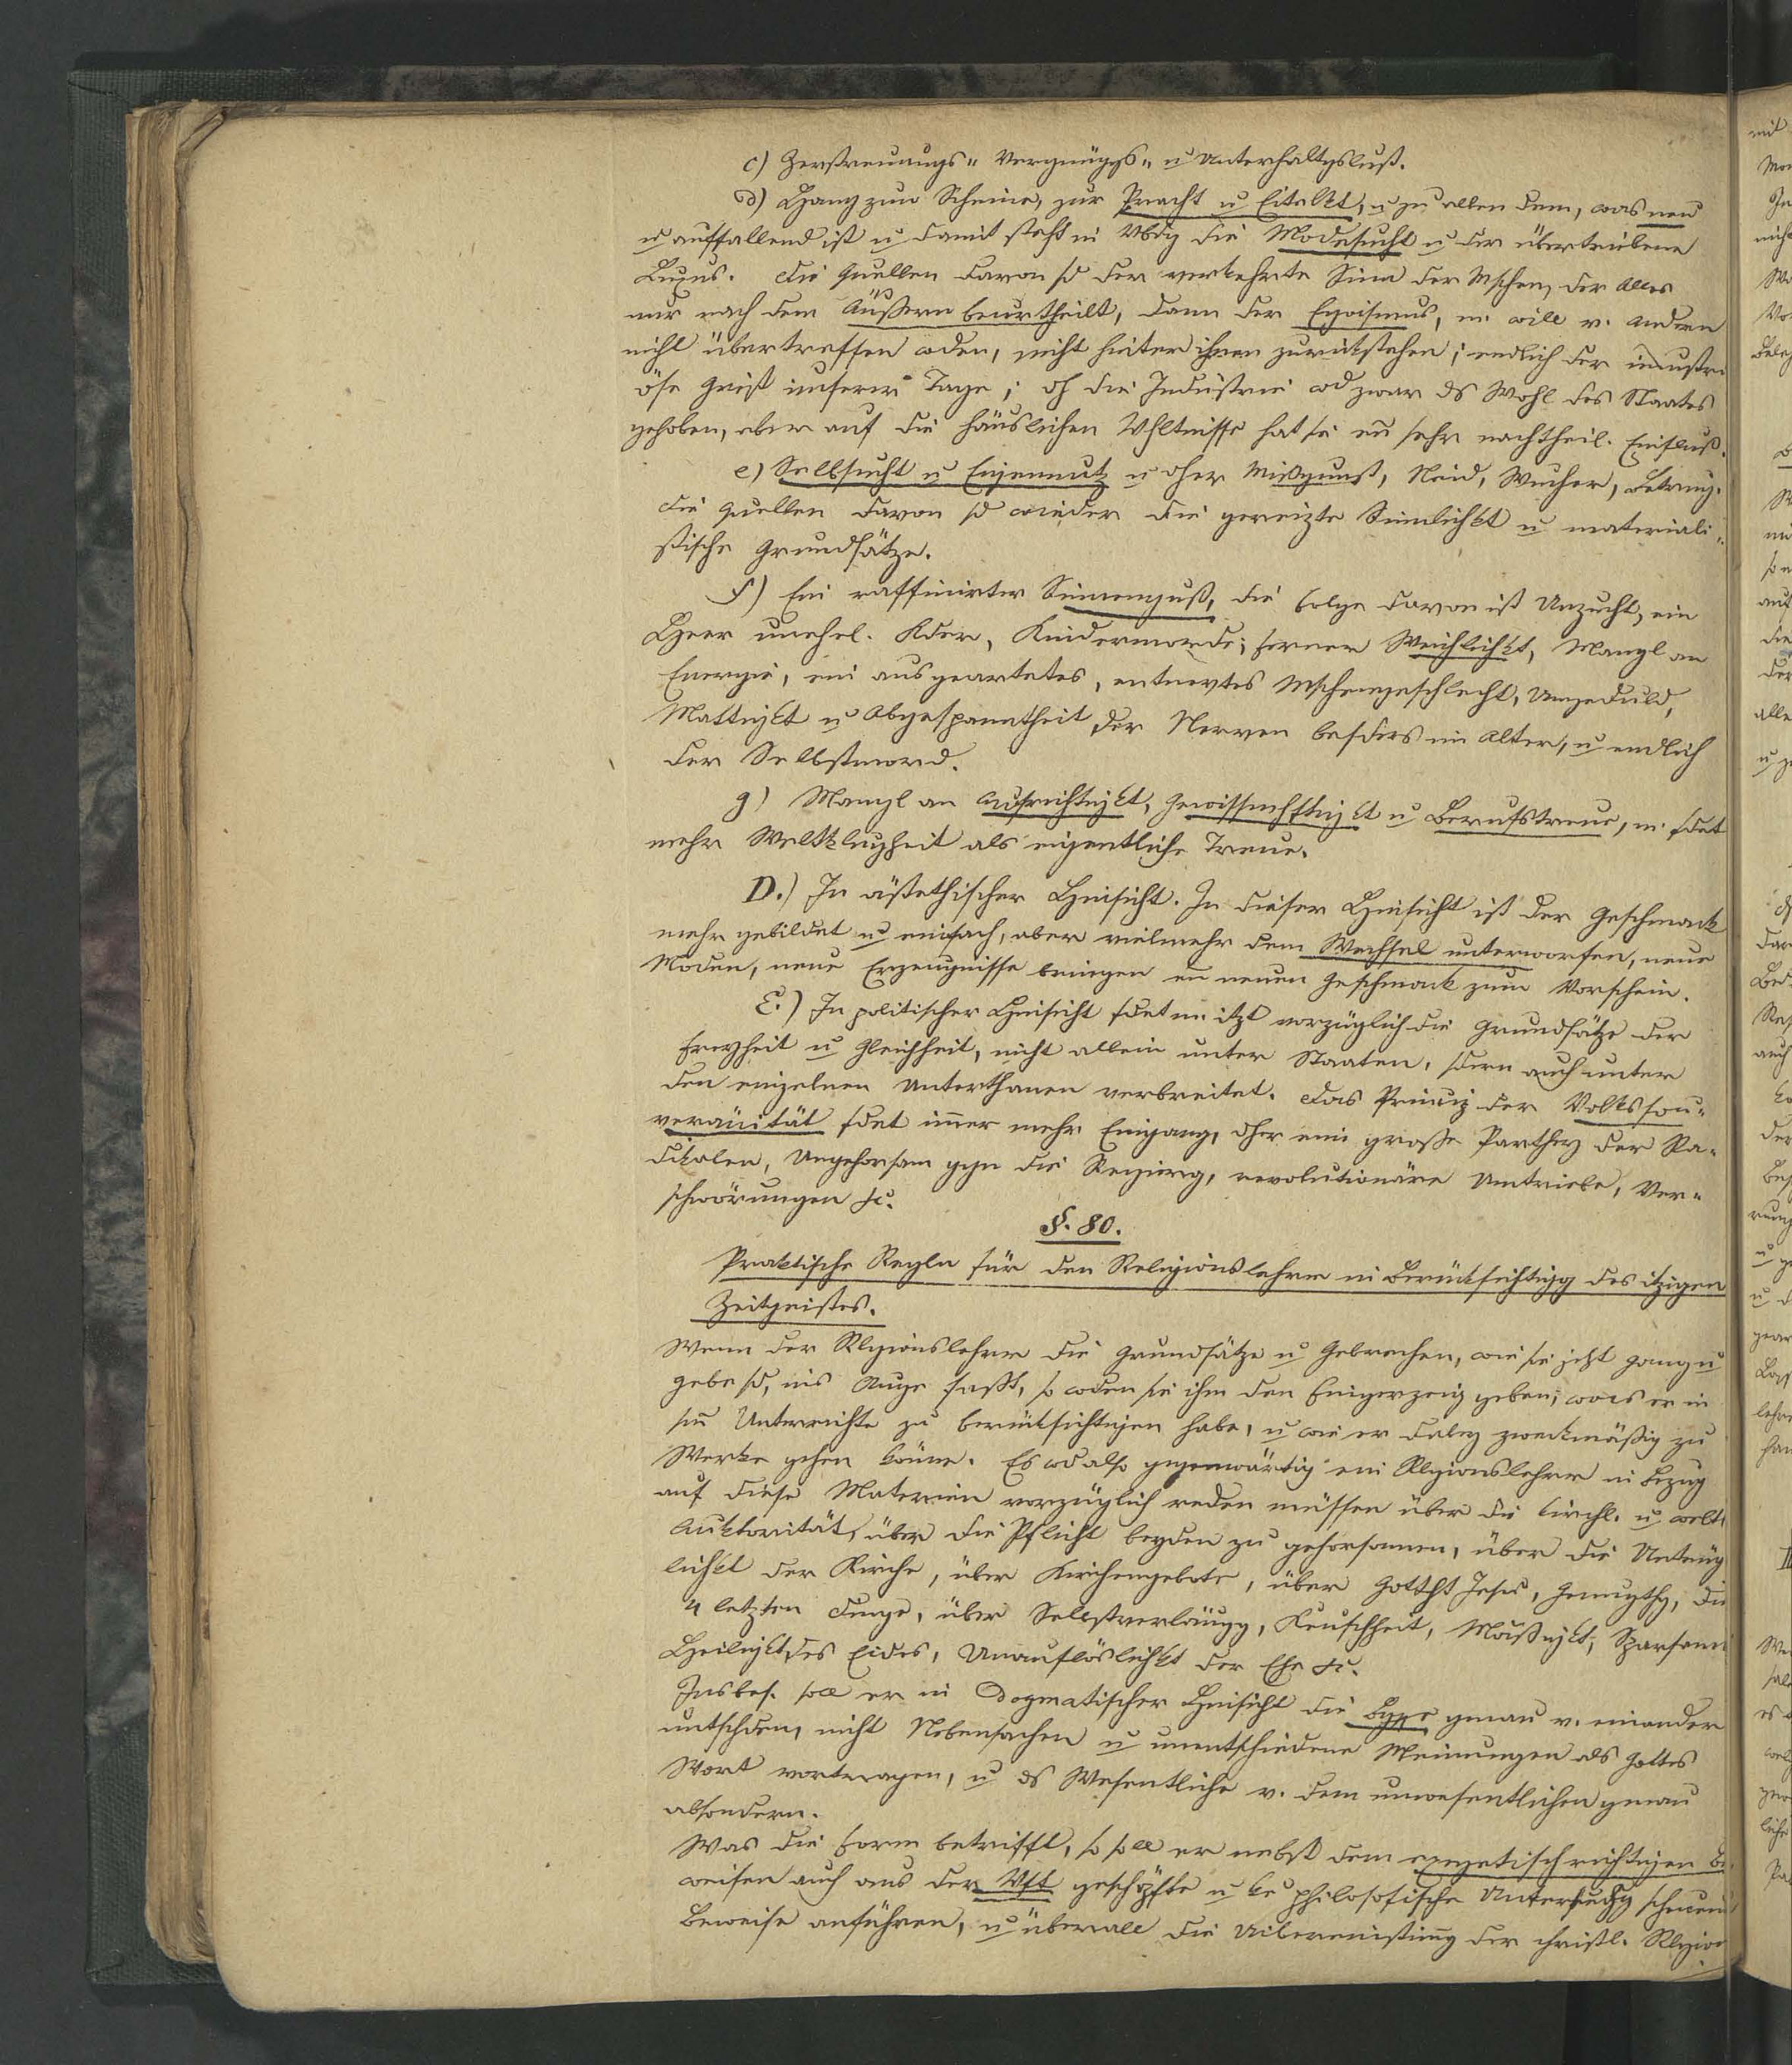 c) Zerstreuungs- Vergnügგs- u Unterhaltgslust.
d) Hang zum Scheine, zur Pracht u Eitelkt, u zu allem dem, was neu
u auffallend ist u damit steht in Vbdg die Modesucht u der übertriebene
Luxus. Die Quellen davon sd der verkehrte Sinn der Mschen, der Alles
nur nach dem Äußern beurtheilt, dann der Egoismus, m. will v. Andern
nicht übertroffen wden, nicht hinter ihnen zurückstehen; endlich der industri
öse Geist unserer Tage; dh die Industrie wd zwar ds Wohl des Staates
gehoben, aber auf die häuslichen Vhltnisse hat sie en sehr nachtheil. Einfluß.
e) Selbsucht u Eigennutz u dher Mißgunst, Neid, Wucher, Betrug.
Die Quellen davon sd wieder die gereizte Sinnlichkt u materiali-
stische Grundsätze.
f) Ein raffinirter Sinnengenuß, die Folge davon ist Unzucht, ein
Heer unehel. Kder, Kindermorde; ferner Weichlichkt, Mangl an
Energie, ein ausgeartetes, entnervtes Mschengeschlecht, Ungeduld,
Mattigkt u Abgespanntheit der Nerven besders im Alter, u endlich
der Selbstmord.
g) Mangl an Aufrichtigkt, Gewissenhftigkt u Berufstreue, m. fdet
mehr Weltklugheit als eigentliche Treue.
D.) In ästethischer Hinsicht. In dieser Hinsicht ist der Geschmack
mehr gebildet u einfach, aber vielmehr dem Wechsel unterworfen, neue
Moden, neue Erzeugnisse bringen en neuen Geschmack zum Vorschein.
E.) In politischer Hinsicht fdet m. itzt vorzüglich die Grundsätze der
Freyheit u Gleichheit, nicht allein unter Staaten, sdern auch unter
den einzelnen Unterthanen verbreitet. Das Prinzip der Volkssou-
veränität fdet immer mehr Eingang, dher eine große Parthey der Ra-
dikalen, Ungehorsam gegn die Regierg, revolutionäre Umtriebe, Ver-
schwörungen etc.
§. 80.
Praktische Regln für den Religionslehrer in Berücksichtigg des itzigen
Zeitgeistes.
Wenn der Rlgionslehrer die Grundsätze u Gebrechen, wie sie jetzt gang u
gebe sd, ins Auge faßt, so wden sie ihm den Fingerzeig geben, was er in
sm Unterrichte zu berücksichtigen habe, u wie er dabey zweckmäßig zu
Werke gehen könne. Es wd also gegenwärtig ein Rlgionslehrer in Bezug
auf diese Materien vorzüglich reden müssen über die kirchl. u welt.
Auktorität, über die Pflicht beyden zu gehorsamen, über die Untrüg
lichkt der Kirche, über Kirchengebote, über Gotth Jesu, Genugthg, die
4 letzten Dinge, über Selbstverläugg, Keuschheit, Mäßigkt, Sparsam
Heiligkt des Eides, Unauflöslichkt der Ehe etc.
Insbes. soll er in dogmatischer Hinsicht die Bgffe genau v. einander
untschden, nicht Nebensachen u unentschiedene Meinungen als Gottes
Wort vortragen, u ds Wesentliche v. dem unwesentlichen genau
absondern.
Was die Form betrifft, so soll er nebst dem exegetisch richtigen Be
weisen auch aus der Vft geschöpfte u ke philosofische Untersuchg scheuende
Beweise anführen, u überall die Uibereinstimg der christl. Rlgion